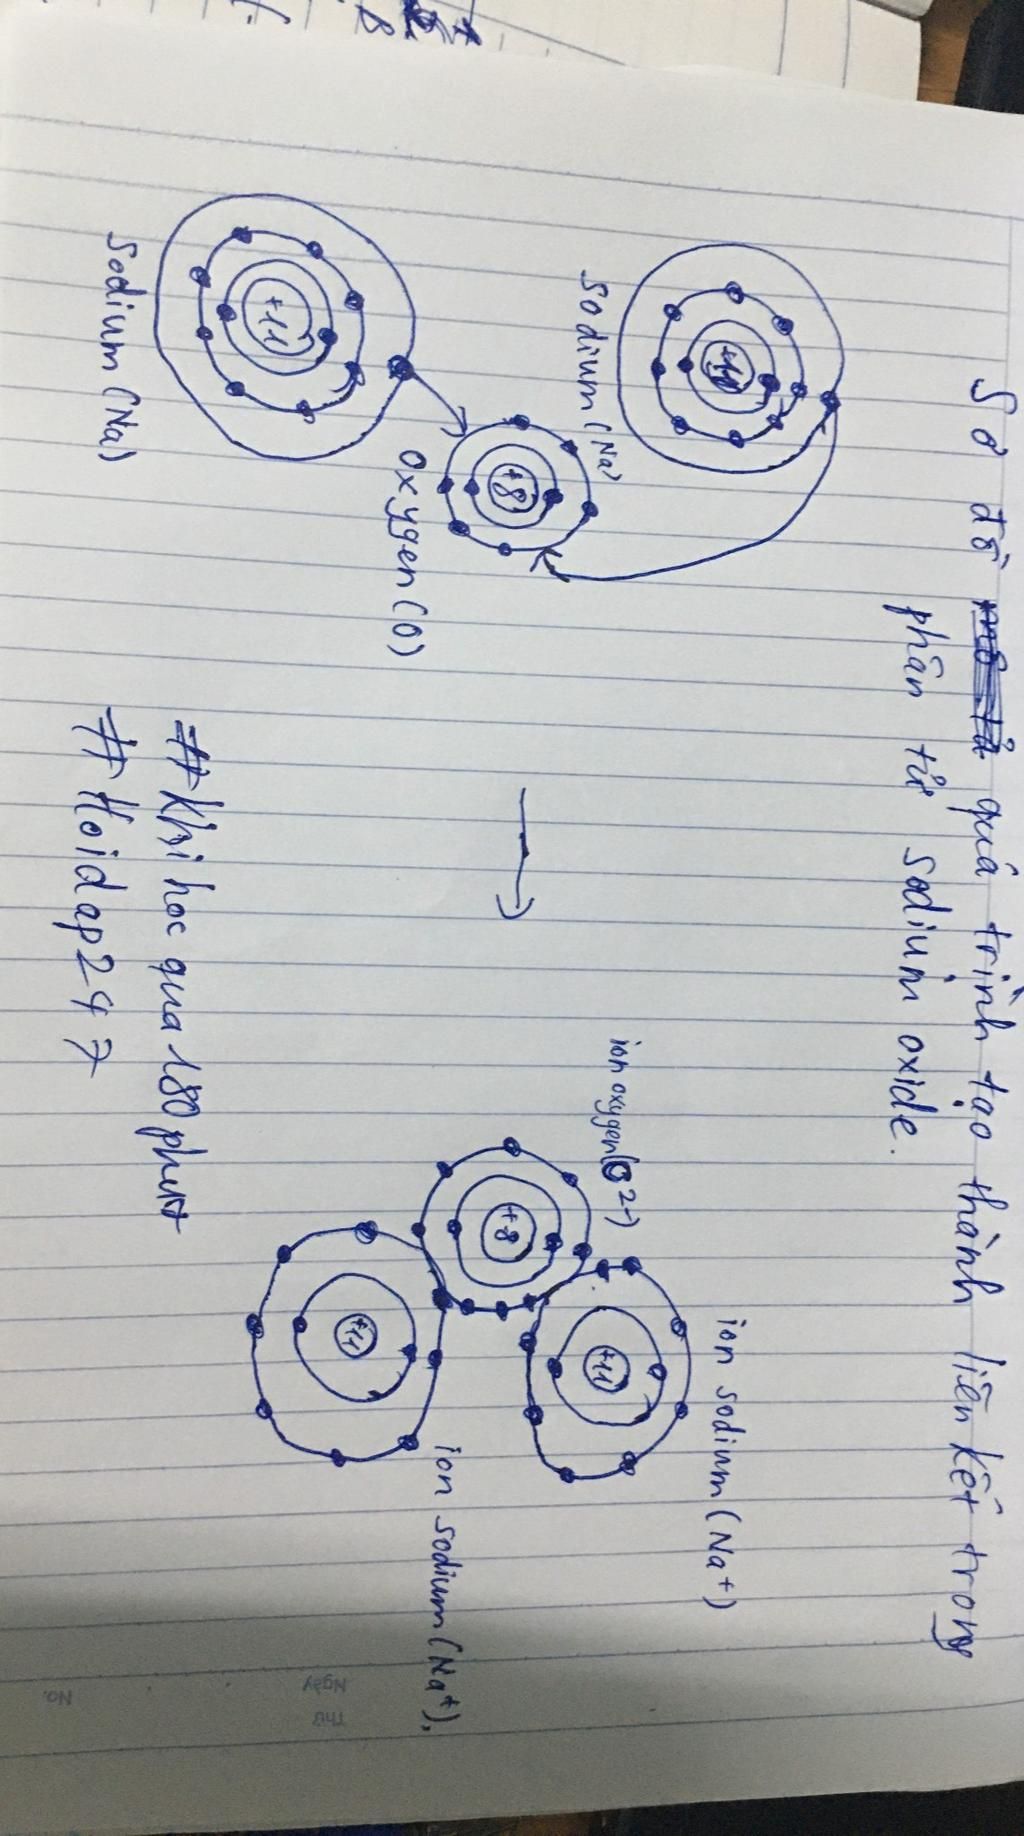 Sơ đồ quá trình tạo thành liên kết trong
phân tử sodium oxide.
Sodium (Na)
+11
+8
oxygen (O)
Sodium (Na)
+11
ion oxygen (O2-)
+8
ion sodium (Na+)
+11
ion sodium (Na+).
+11
#Khi hoc qua 180 phut
#Hoidap247
Thứ
Ngày
No.